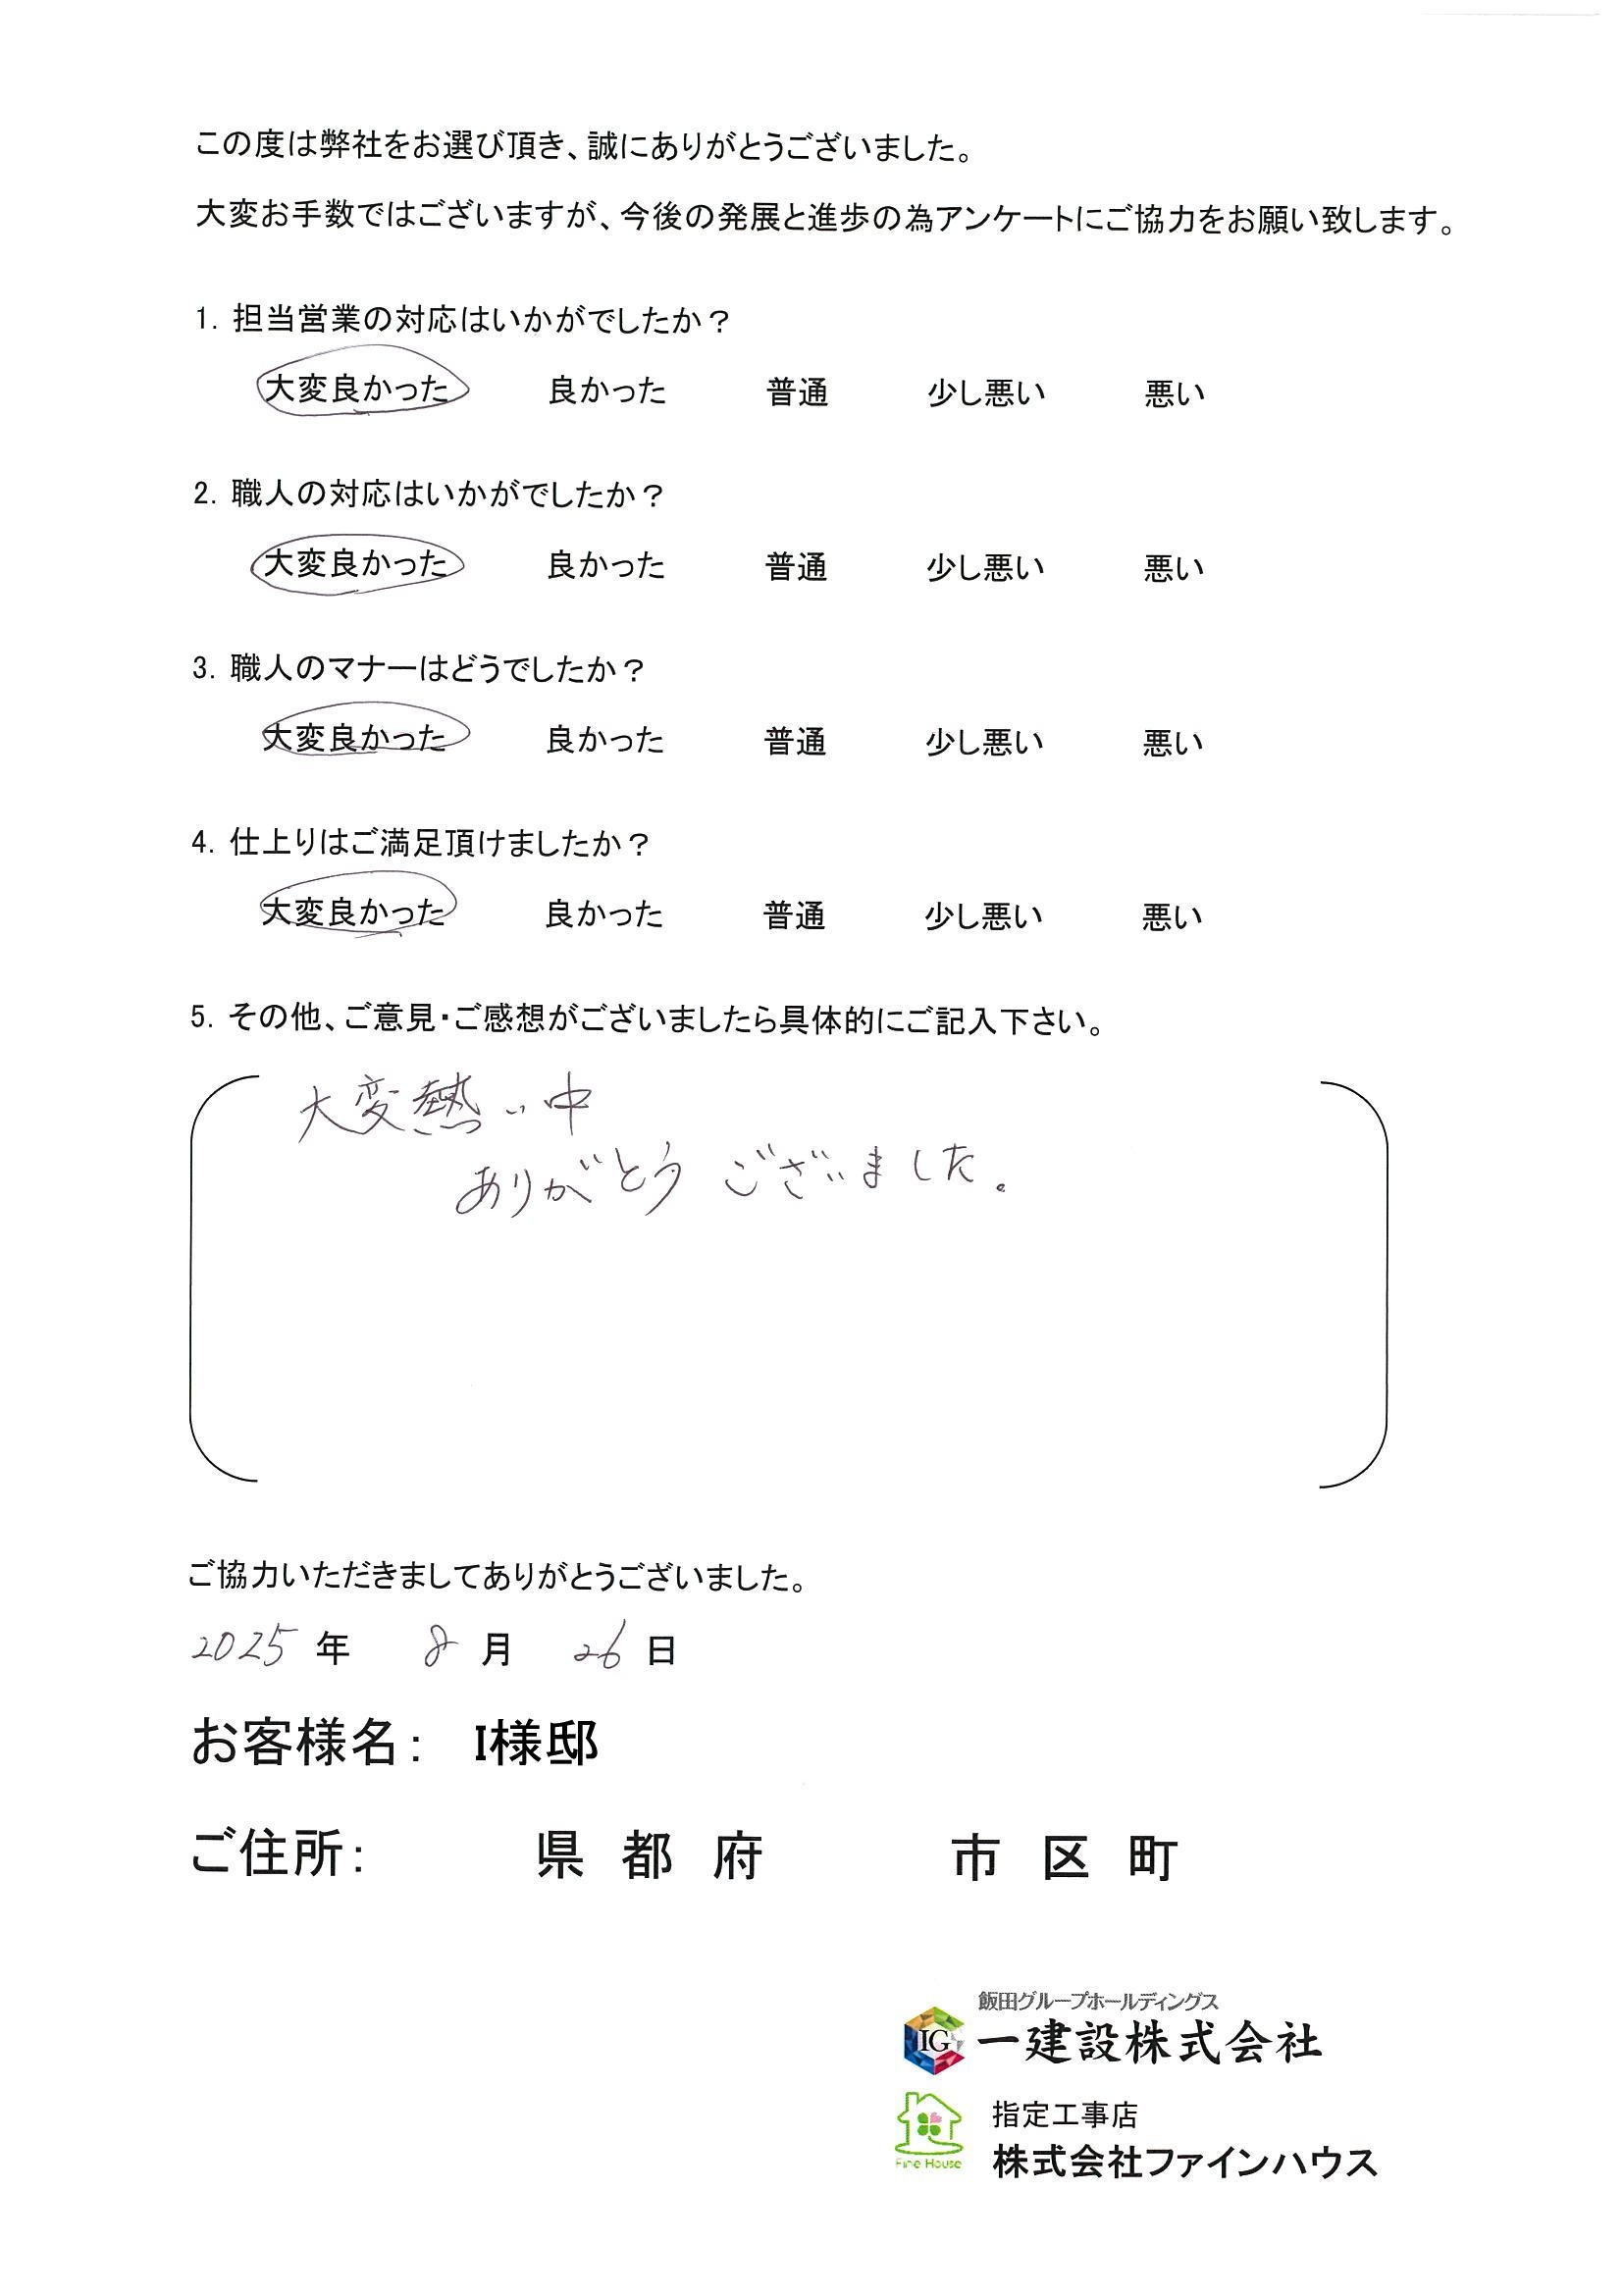 この度は弊社をお選び頂き、誠にありがとうございました。
大変お手数ではございますが、今後の発展と進歩の為アンケートにご協力をお願い致します。
1. 担当営業の対応はいかがでしたか？
大変良かった 良かった 普通 少し悪い 悪い
2. 職人の対応はいかがでしたか？
大変良かった 良かった 普通 少し悪い 悪い
3. 職人のマナーはどうでしたか？
大変良かった 良かった 普通 少し悪い 悪い
4. 仕上りはご満足頂けましたか？
大変良かった 良かった 普通 少し悪い 悪い
5. その他、ご意見・ご感想がございましたら具体的にご記入下さい。
大変熱い中
ありがとうございました。
ご協力いただきましてありがとうございました。
2025 年 8 月 26 日
お客様名： I様邸
ご住所： 県 都 府 市 区 町
飯田グループホールディングス
IG 一建設株式会社
指定工事店
Fine House 株式会社ファインハウス